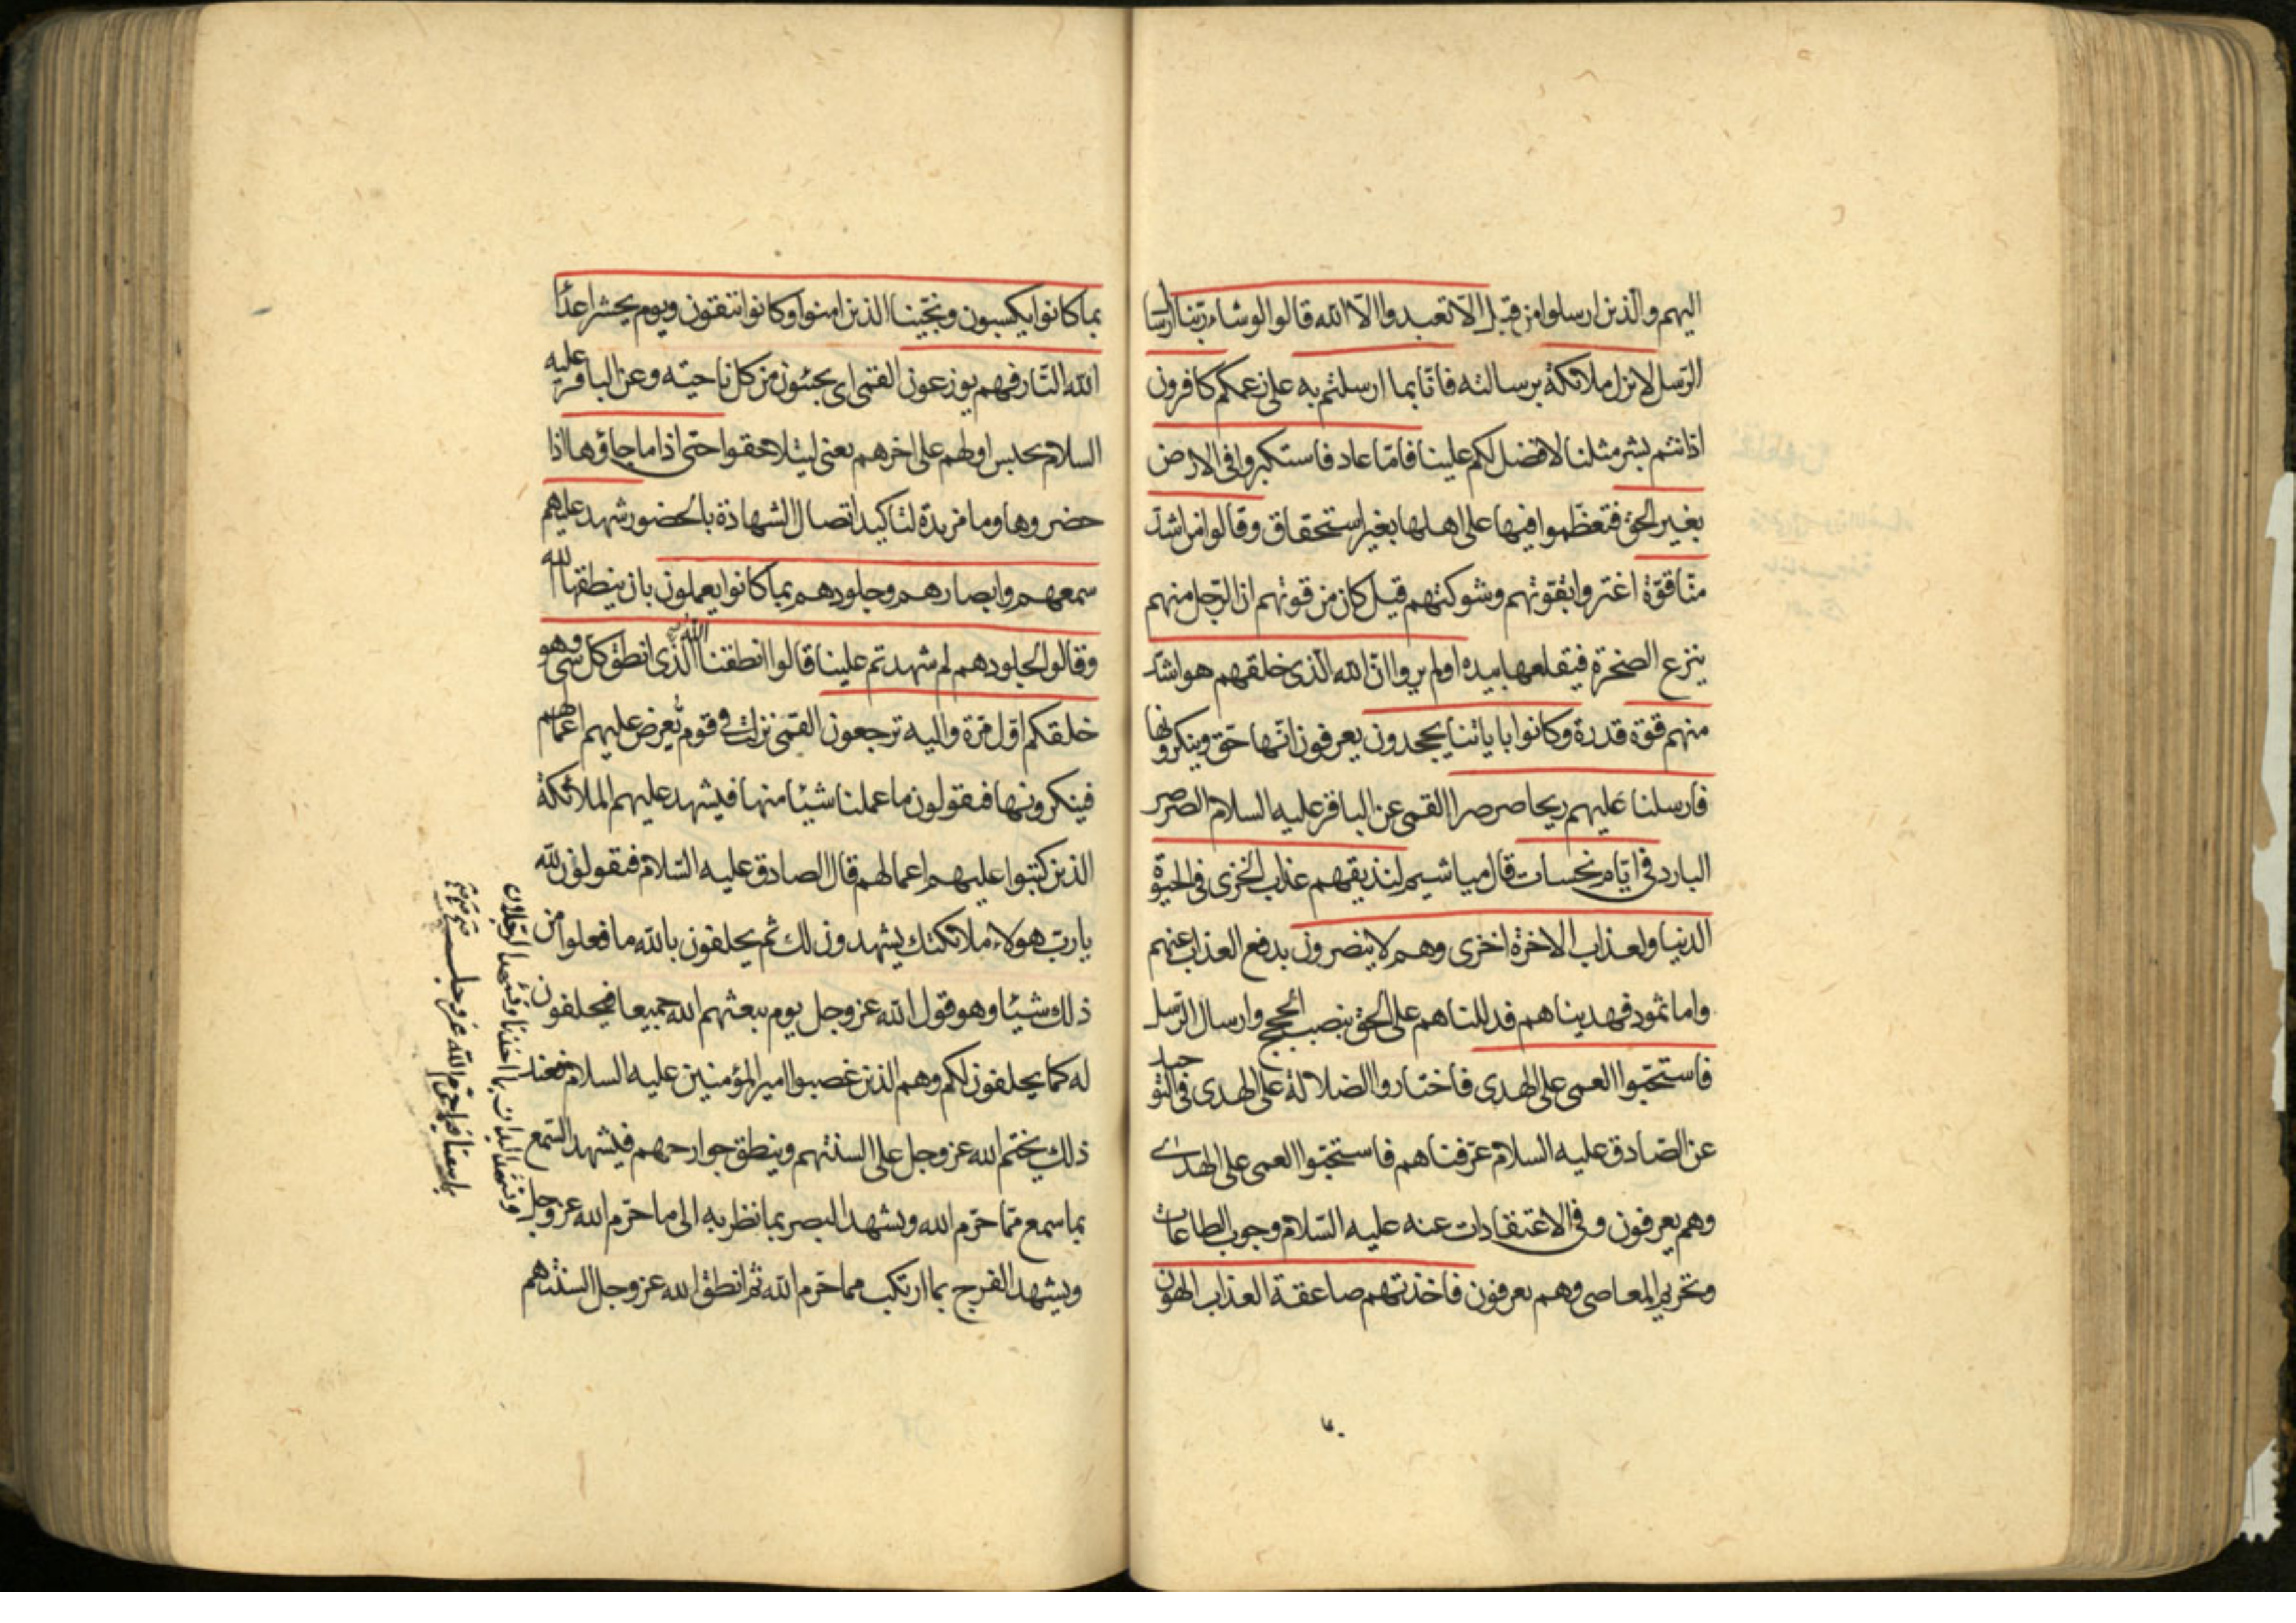 اليهم والذين ارسلوا من قبل الّا تعبدوا الّا الله قالوا لو شاء ربّنا ارسال
الرّسل لانزل ملائكة برسالته فانّا بما ارسلتم به على زعمكم كافرون
اذ انتم بشر مثلنا لا فضل لكم علينا فامّا عاد فاستكبروا فى الارض
بغير الحقّ فتعظّموا فيها على اهلها بغير استحقاق وقالوا من اشدّ
منّا قوّة اغترّوا بقوتهم وشوكتهم قيل كان من قوتهم ان الرّجل منهم
ينزع الصخرة فيقلعها بيده اولم يروا انّ الله الّذى خلقهم هو اشدّ
منهم قوّة قدرة وكانوا باياتنا يجحدون يعرفون انّها حقّ وينكرونها
فارسلنا عليهم ريحا صرصرا القمى عن الباقر عليه السلام الصرصر
البارد فى ايّام نحسات قال مياشيم لنذيقهم عذاب الخزى فى الحيوة
الدنيا ولعذاب الاخرة اخزى وهم لا ينصرون بدفع العذاب عنهم
واما ثمود فهديناهم فدللناهم على الحق بنصب الحجج وارسال الرّسل
فاستحبّوا العمى على الهدى فاختاروا الضلالة على الهدى فى التوحيد
عن الصّادق عليه السلام عرّفناهم فاستحبّوا العمى على الهدى
وهم يعرفون وفى الاعتقادات عنه عليه السّلام وجوب الطاعات
وتحريم المعاصى وهم يعرفون فاخذتهم صاعقة العذاب الهون
بما كانوا يكسبون ونجّينا الذين امنوا وكانوا يتقون ويوم يحشر اعداء
الله النّار فهم يوزعون القمى اى يجيئون من كل ناحيته وعن الباقر عليه
السلام يحبس اولهم على اخرهم يعنى ليتلاحقوا حتى اذا ما جاؤها اذا
حضروها وما مزيدة لتاكيد اتصال الشهادة بالحضور شهد عليهم
سمعهم وابصارهم وجلودهم بما كانوا يعملون بان ينطقها الله
وقالوا لجلودهم لم شهدتم علينا قالوا انطقنا الله الّذى انطق كل شئ وهو
خلقكم اوّل مرّة واليه ترجعون القمّى نزلت فى قوم يعرض عليهم اعمالهم
فينكرونها فيقولون ما عملنا شيئا منها فيشهد عليهم الملائكة
الذين كتبوا عليهم اعمالهم قال الصادق عليه السّلام فيقولون لله
يا ربّ هولاء ملائكتك يشهدون لك ثم يحلفون بالله ما فعلوا من
ذلك شيئا وهو قول الله عز وجل يوم يبعثهم الله جميعا فيحلفون
له كما يحلفون لكم وهم الذين غصبوا امير المؤمنين عليه السلام فعند
ذلك يختم الله عز وجل على السنتهم وينطق جوارحهم فيشهد السّمع
بما سمع ممّا حرّم الله ويشهد البصر بما نظر به الى ما حرّم الله عز وجل
ويشهد الفرج بما ارتكب مما حرّم الله ثم انطق الله عز وجل السنتهم
وتشهد اليدان بما اخذتا وتشهد الرّجلان
بما سعتا فيما حرّم الله عزّ وجلّ